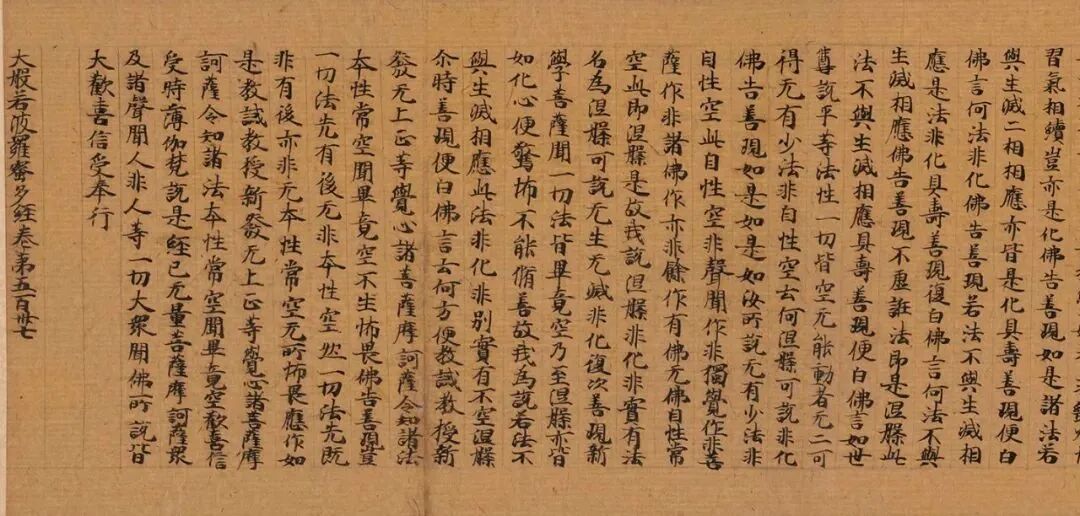 習氣相續豈亦是化佛告善現如是諸法若
與生滅二相相應亦皆是化具壽善現便白
佛言何法非化佛告善現若法不與生滅相
應是法非化具壽善現復白佛言何法不與
生滅相應佛告善現不虛誑法即是涅槃此
法不與生滅相應具壽善現便白佛言如世
尊說平等法性一切皆空无能動者无二可
得无有少法非自性空云何涅槃可說非化
佛告善現如是如是如汝所說无有少法非
自性空此自性空非聲聞作非獨覺作非菩
薩作非諸佛作亦非餘作有佛无佛自性常
空此即涅槃是故我說涅槃非化非實有法
名為涅槃可說无生无滅非化復次善現新
學菩薩聞一切法皆畢竟空乃至涅槃亦皆
如化心便驚怖不能脩善故我為說若法不
與生滅相應此法非化非別實有不空涅槃
尒時善現便白佛言云何方便教誡教授新
發无上正等覺心諸菩薩摩訶薩令知諸法
本性常空聞畢竟空不生怖畏佛告善現豈
一切法先有後无非本性空然一切法先既
非有後亦非无本性常空无所怖畏應作如
是教誡教授新發无上正等覺心諸菩薩摩
訶薩令知諸法本性常空聞畢竟空歡喜信
受時薄伽梵說是經已无量菩薩摩訶薩衆
及諸聲聞人非人等一切大衆聞佛所說皆
大歡喜信受奉行
大般若波羅蜜多經卷第五百卅七